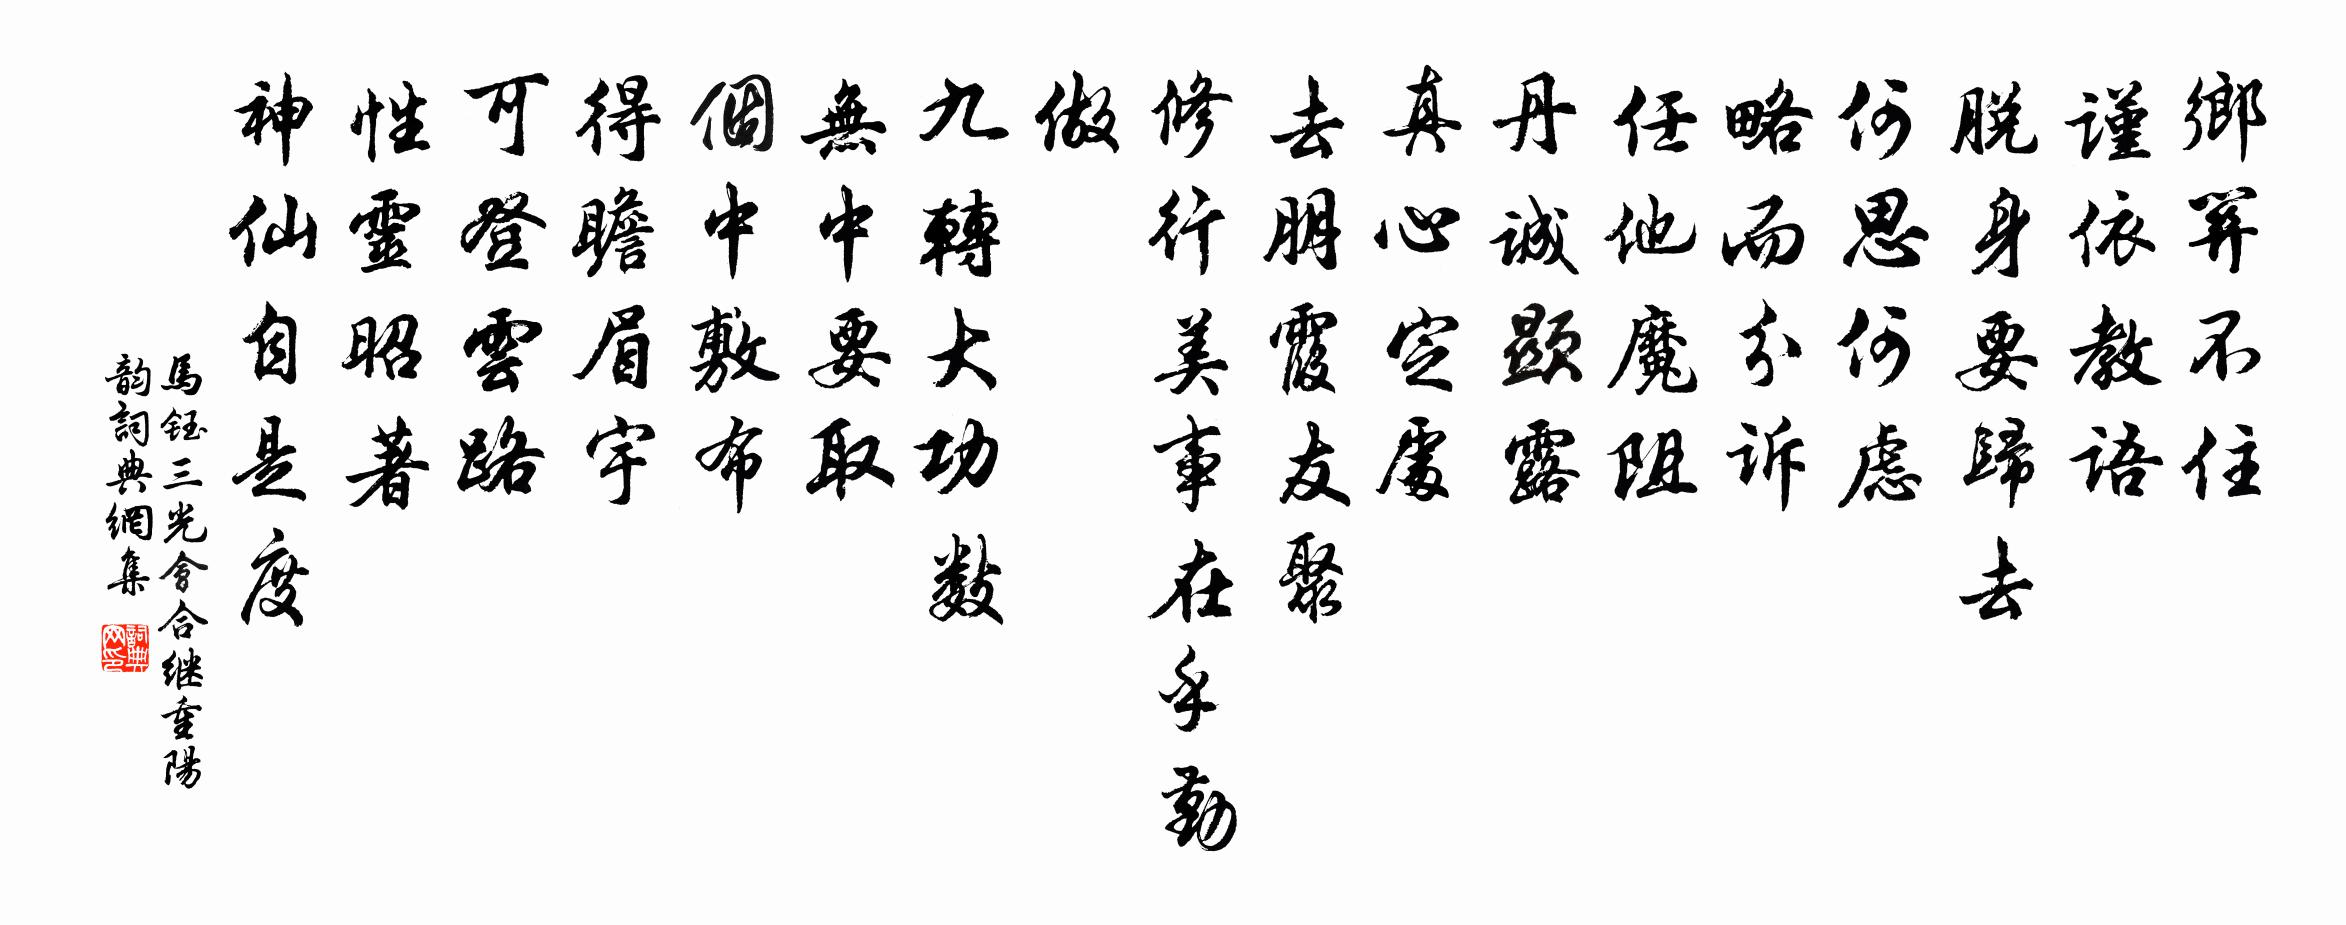 鄉關不住
謹依教語
脫身要歸去
何思何慮
略而分訴
任他魔阻
丹誠顯露
真心定處
去朋霞友聚
修行美事在乎勤
做
九轉大功數
無中要取
個中敷布
得瞻眉宇
可登雲路
性靈昭著
神仙自是度
馬鈺三光會合继重陽
韵詞典網集
詞典网印